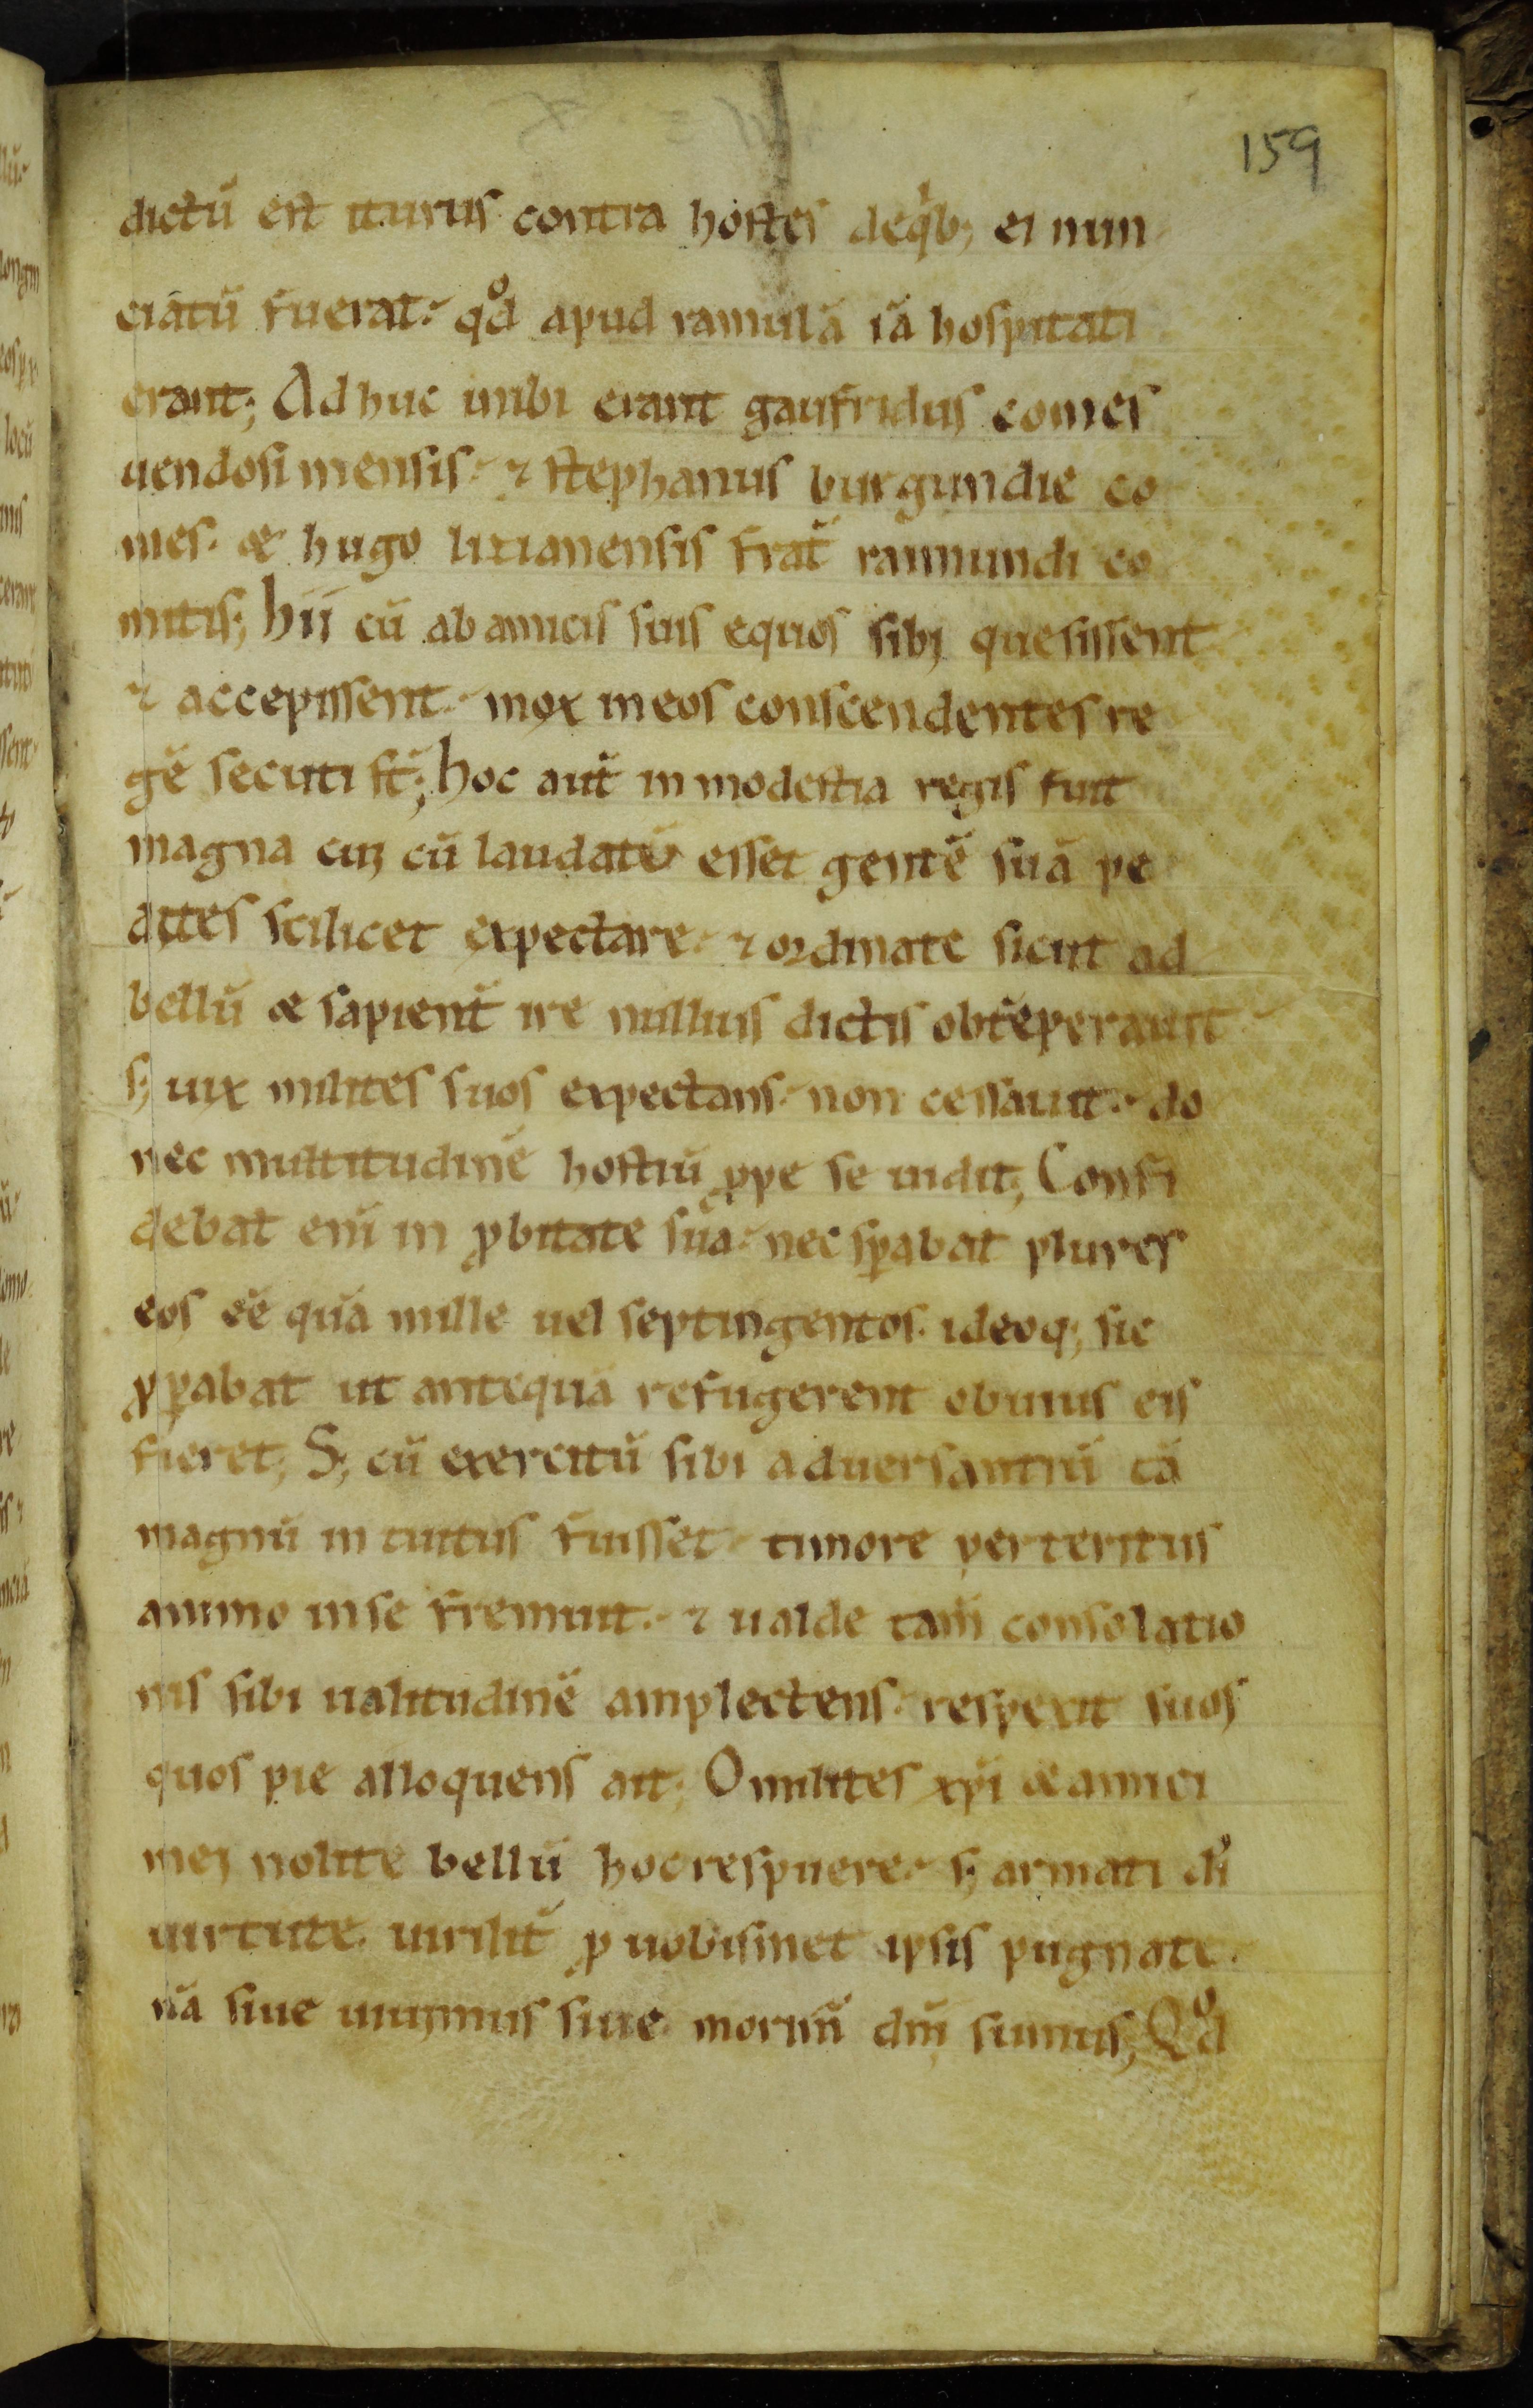 159
dictū est iturus contra hostes deqͥb; ei nun
ciatū fuerat. qd̊ apud ramulā iā hospitati
erant; Adhuc inibi erant gaufridus comes
uendosimensis. ⁊ stephanus burgundie co
mes. & hugo lizianensis frat̄ raimundi co
mitis; hii cū ab amicis suis equos sibi quesissent
⁊ accepissent. mox in eos conscendentes re
gē secuti st̄; hoc aut̄ inmodestia regis fuit
magna cui cū laudatū esset gentē suā pe
dites scilicet expectare. ⁊ ordinate sicut ad
bellū & sapient̄ ire nullius dictis obtēperauit
s; uix milites suos expectans. non cessauit. do
nec multitudinē hostiū ꝓpe se uidit; Confi
debat eni̅ in ꝓbitate sua. nec sꝑabat plures
eos eē quā mille uel septingentos. ideoq; sic
ꝓꝑabat ut antequā refugerent obuius eis
fieret; S; cū exercitū sibi aduersantiū tā
magnū intuitus fuisset. timore perteritus
animo in se fremuit. ⁊ ualde tam̄ consolatio
nis sibi ualitudinē amplectens. respexit suos
quos pie alloquens ait; O milites xp̄i & amici
mei nolite bellū hoc respuere. s; armati di̅
uirtute. uirilit̄ ꝓ uobismet ipsis pugnate.
nā siue uiuimus siue morim̄ dn̄i sumus; Qd̊